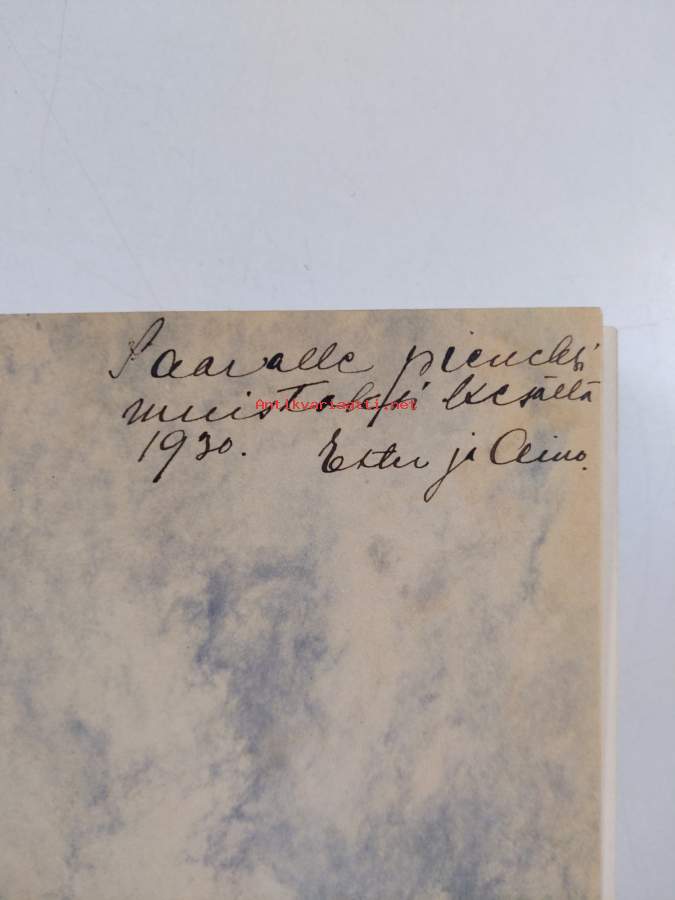 Saavalle pieneksi
muistoksi kesältä
1930. Ester ja Aino.
Antikvariaatti.net